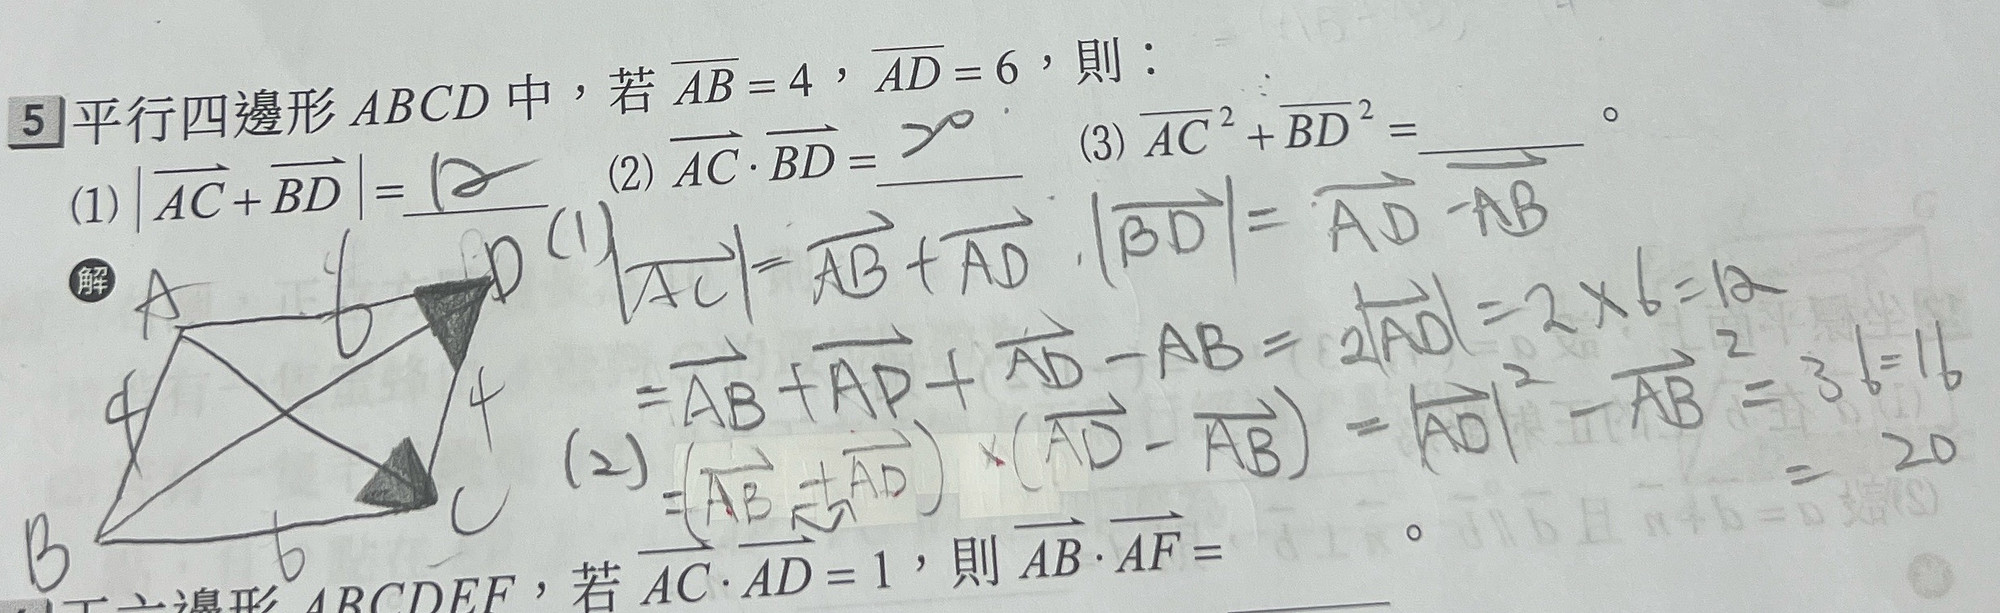 5 平行四邊形 ABCD 中，若 AB = 4，AD = 6，則：
(1) |AC + BD| = 12 (2) AC · BD = 20 (3) AC² + BD² = ______。
解
A 6 D
4 4
B 6 C
(1) |AC| = AB + AD . |BD| = AD - AB
= AB + AD + AD - AB = 2|AD| = 2×6 = 12
(2) = (AB + AD) × (AD - AB) = |AD|² - AB² = 36 = 16
= 20
正六邊形 ABCDEF，若 AC · AD = 1，則 AB · AF = ______。